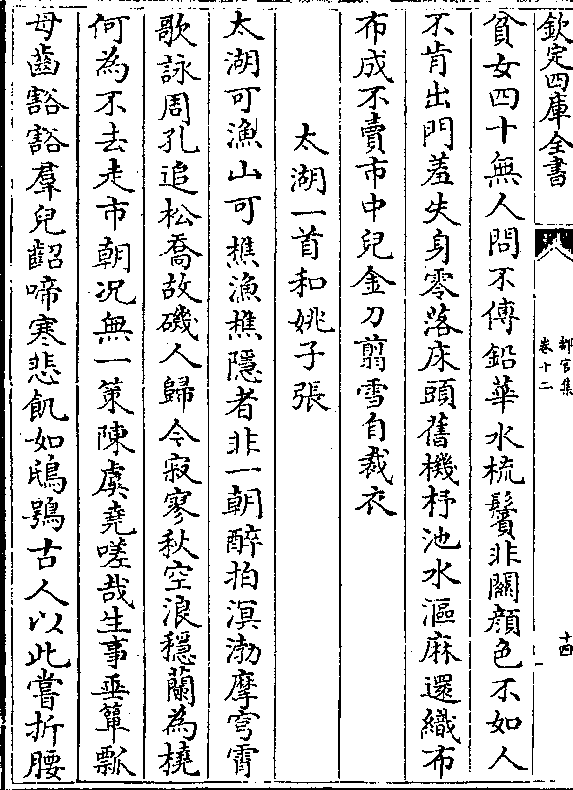 欽定四庫全書
都官集
卷十二
十四
貧女四十無人問不傅鉛華水梳鬢非關顔色不如人
不肯出門羞失身零落床頭舊機杼池水漚麻還織布
布成不賣市中兒金刀翦雪自裁衣
太湖一首和姚子張
太湖可漁山可樵漁樵隱者非一朝醉拍溟渤摩穹霄
歌詠周孔追松喬故磯人歸今寂寥秋空浪穩蘭為橈
何為不去走市朝况無一策陳虞堯嗟哉生事亟簞瓢
母齒豁豁羣兒齠啼寒悲飢如鴟鴞古人以此嘗折腰